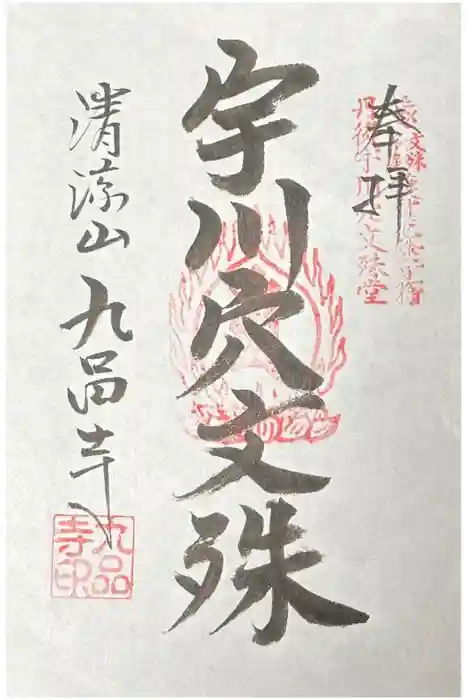 奉拝
丹後宇川穴文殊堂
宇川穴文殊
清涼山 九品寺
九品寺印